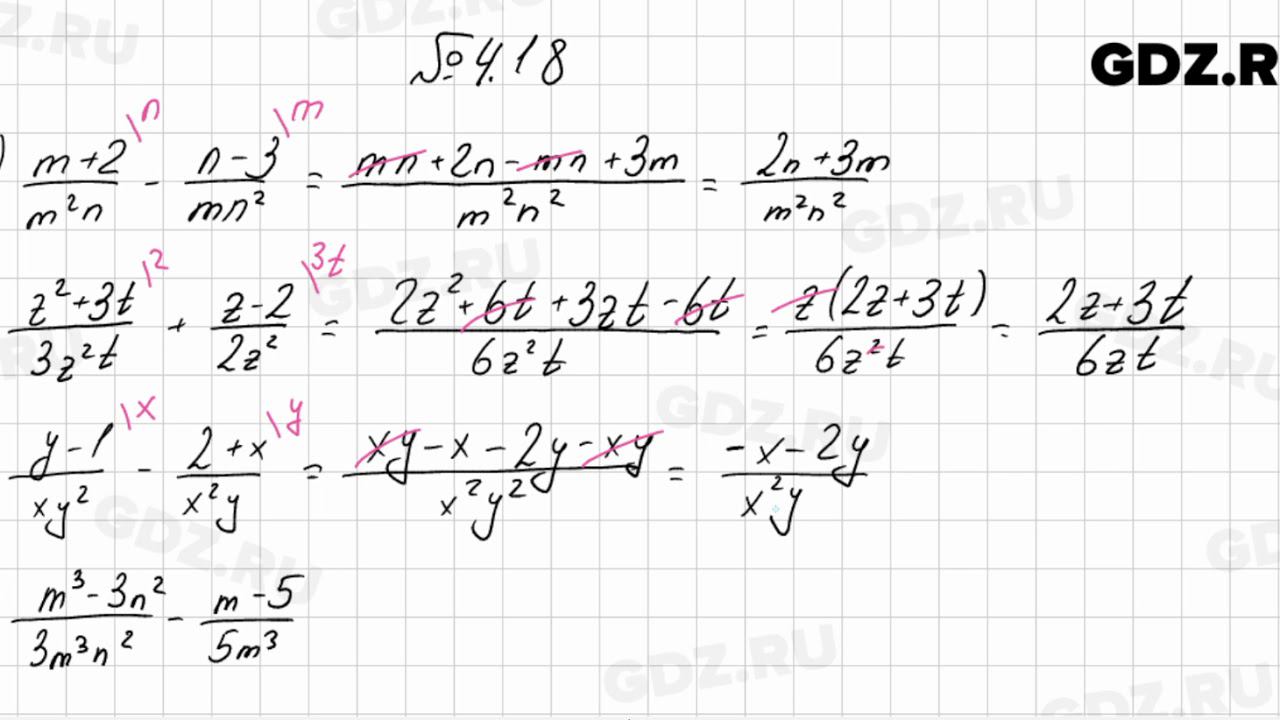 GDZ.R
№ 4.18
) (m+2)/(m²n) \n - (n-3)/(mn²) \m = (mn+2n-mn+3m)/(m²n²) = (2n+3m)/(m²n²)
(z²+3t)/(3z²t) \2 + (z-2)/(2z²) \3t = (2z²+6t+3zt-6t)/(6z²t) = z(2z+3t)/(6z²t) = (2z+3t)/(6zt)
(y-1)/(xy²) \x - (2+x)/(x²y) \y = (xy-x-2y-xy)/(x²y²) = (-x-2y)/(x²y)
(m³-3n²)/(3m³n²) - (m-5)/(5m³)